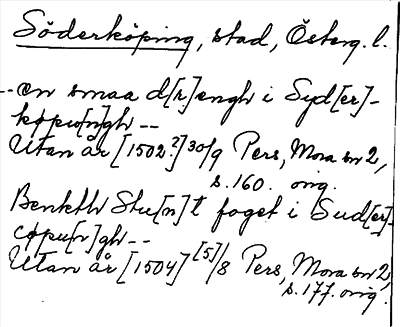 Söderköping, stad, Österg. l.
-- en smaa d[r]engh i Syd[er]-
køpu[n]gh --
Utan år [1502?] 30/9 Pers, Mora nr 2,
s. 160. orig.
Benkth Stu[n]t foget i Sud[er]-
cøpu[n]gh --
Utan år [1504] [5]/8 Pers, Mora nr 2,
s. 177. orig.